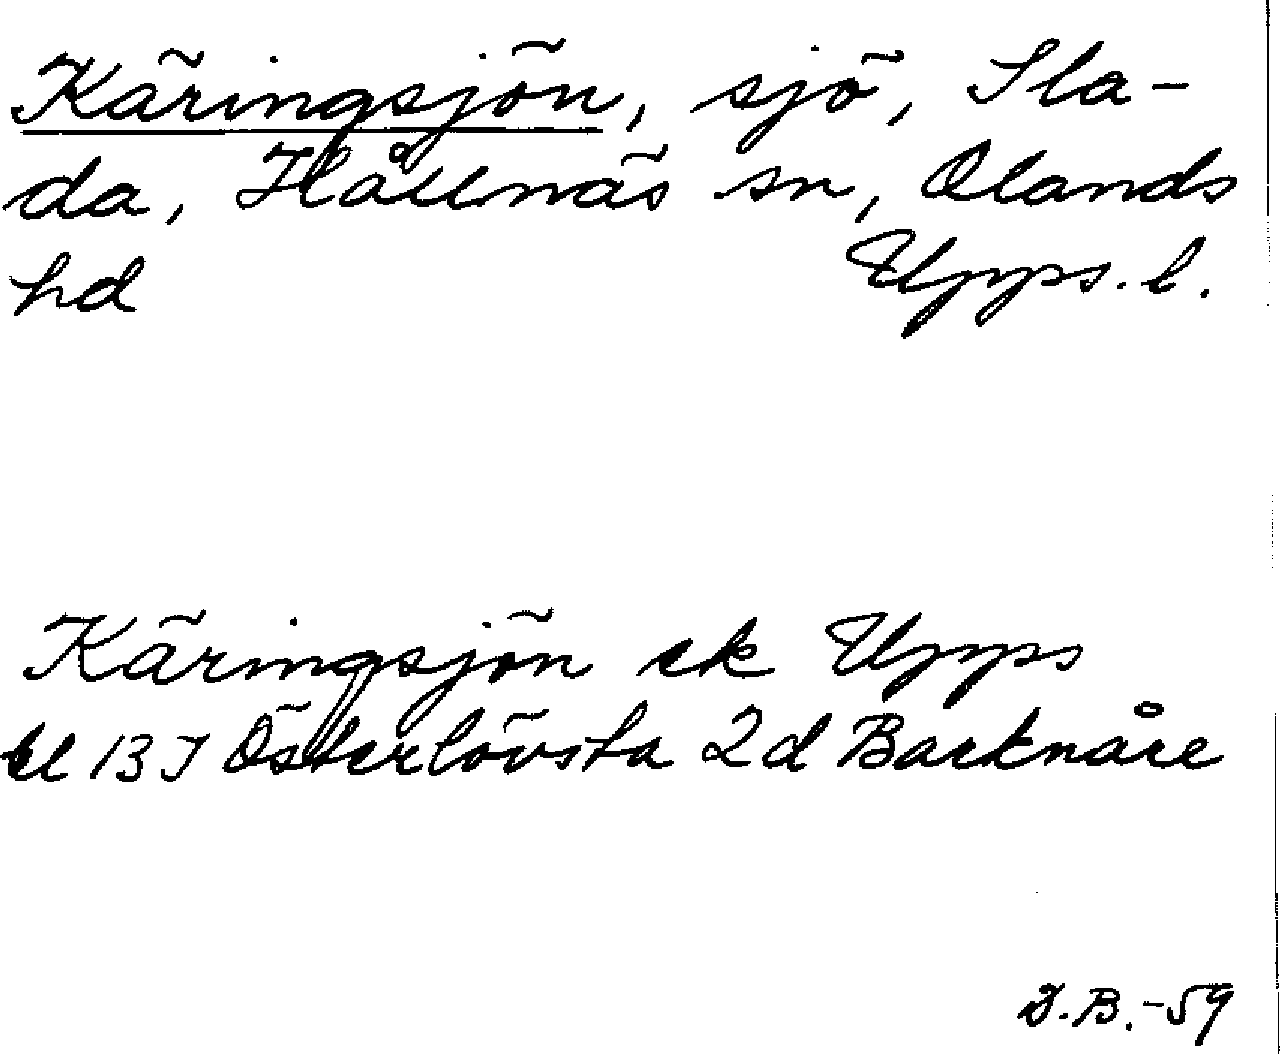 Käringsjön, sjö, Sla-
da, Hållnäs sn, Olands
hd Upps. l.
Käringsjön ek Upps
bl 13 I Österlövsta 2d Backnåre
I.B.-59